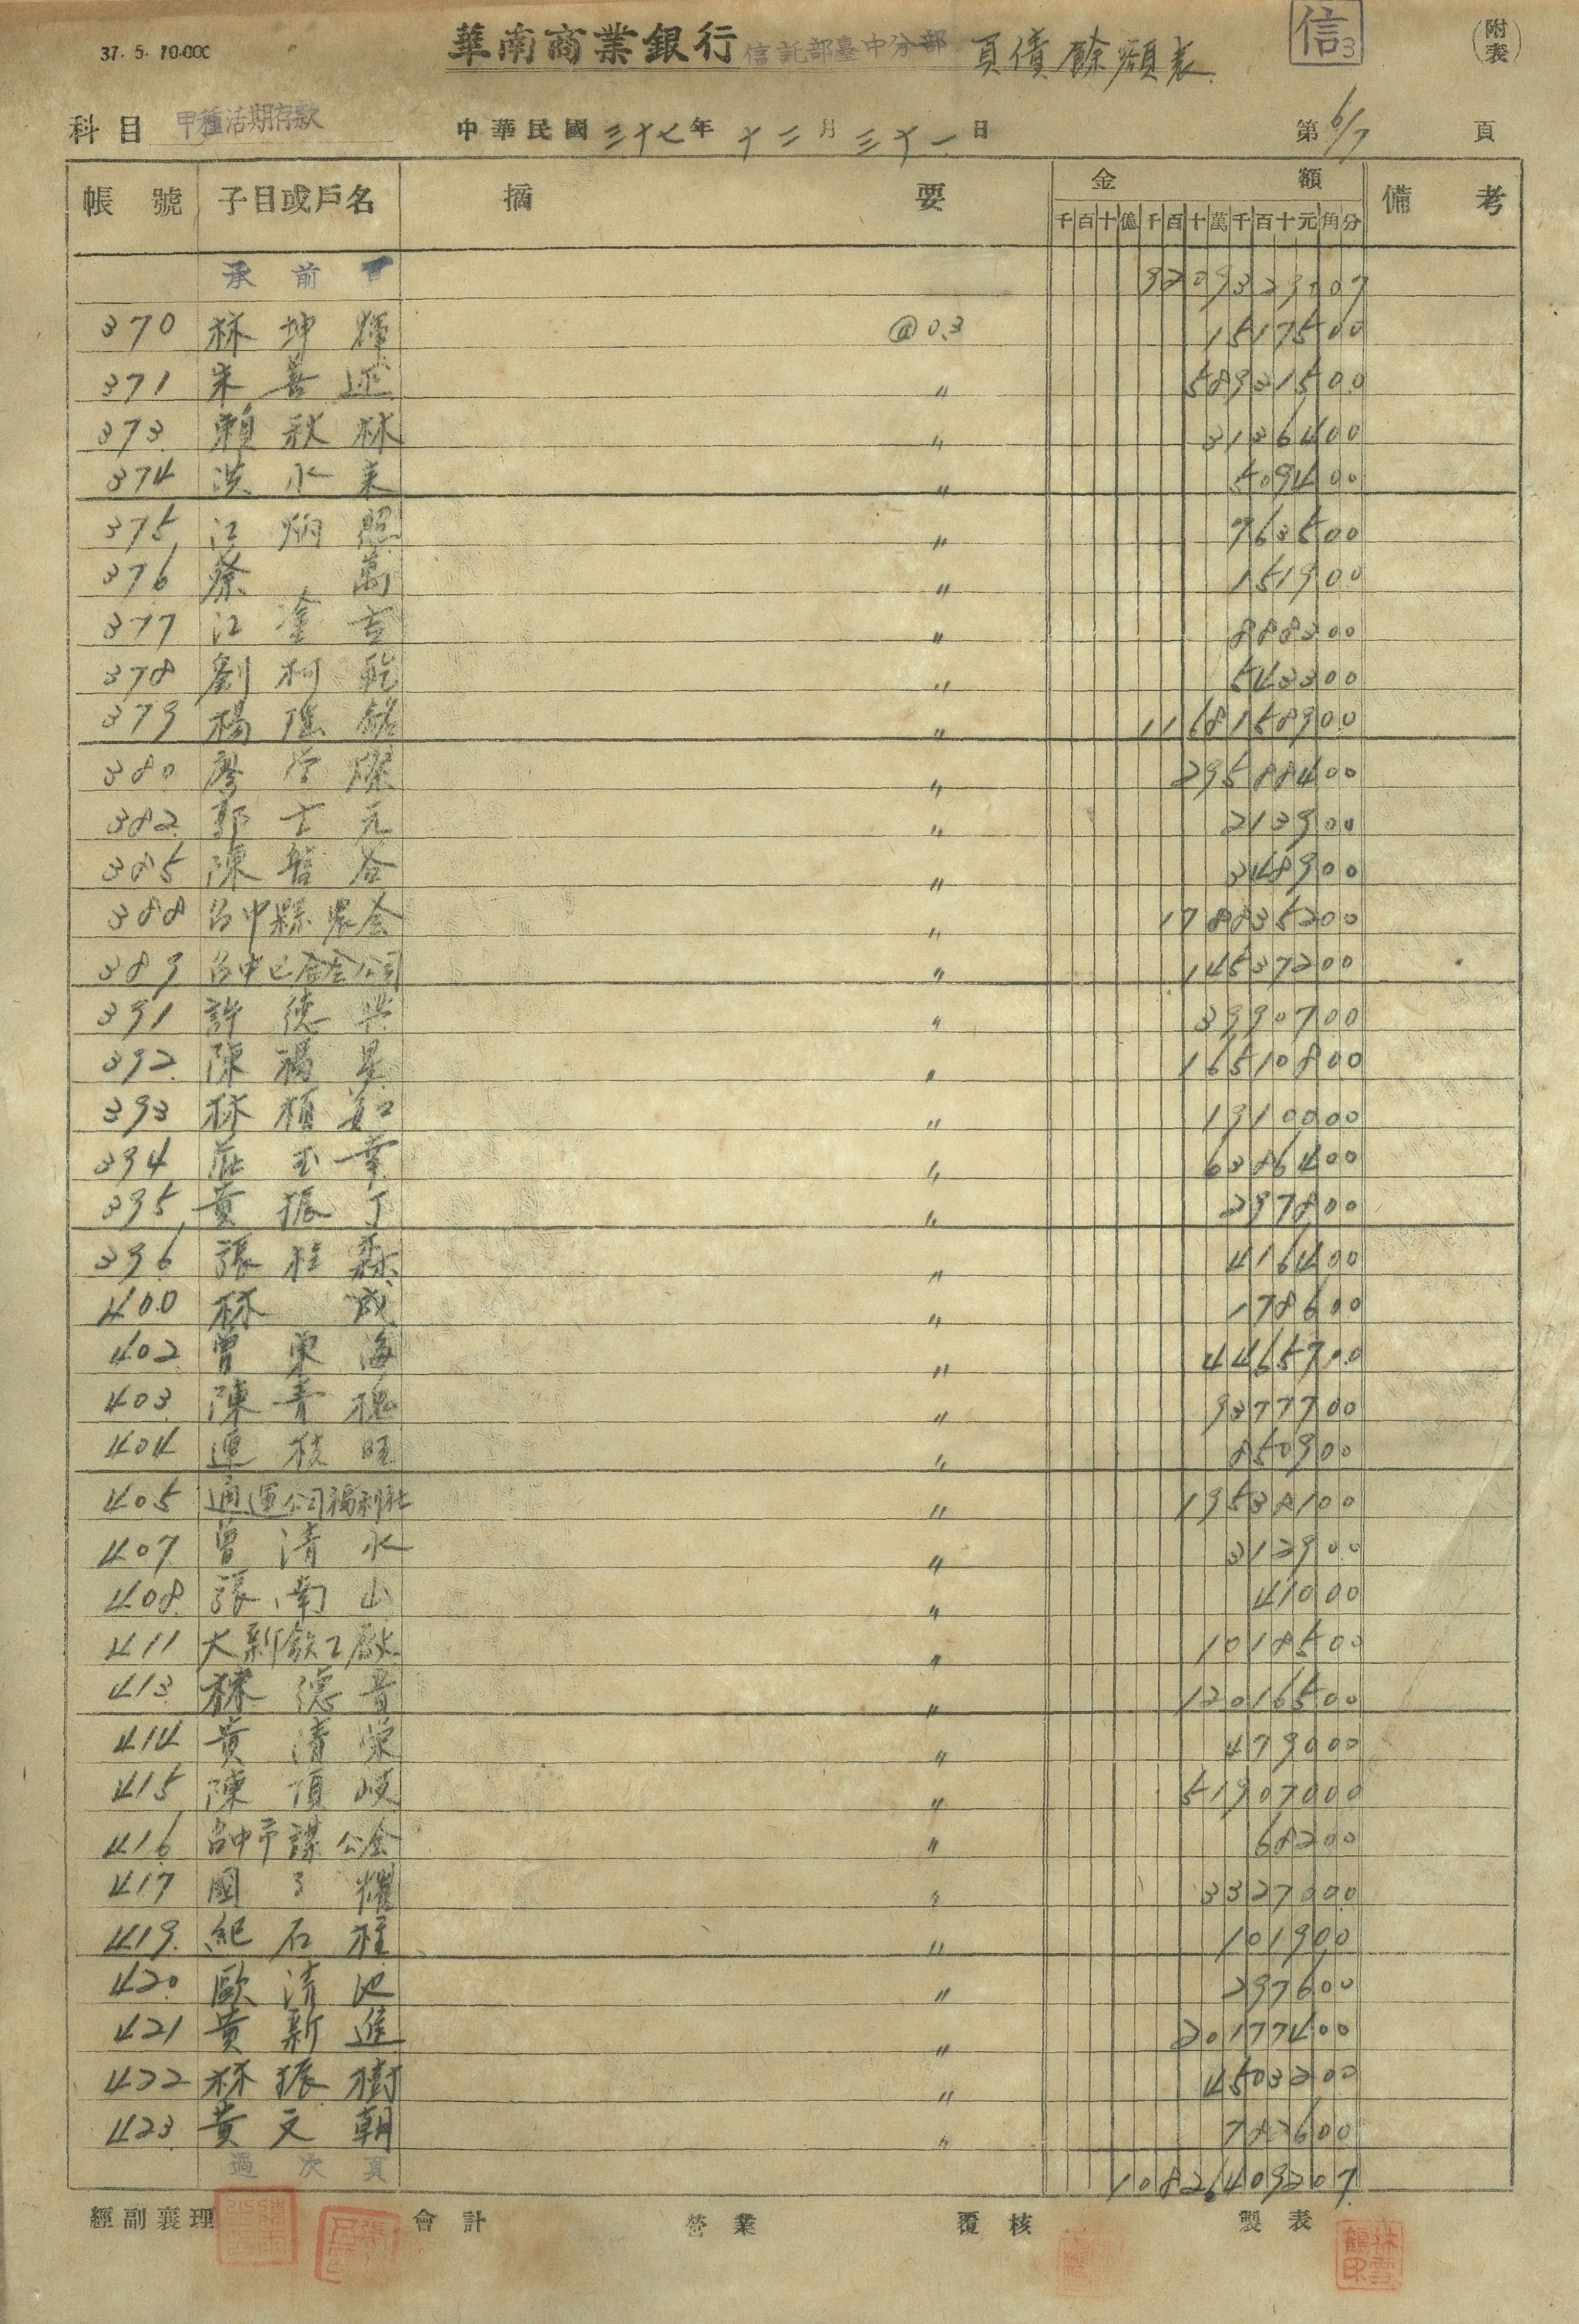 37. 5. 10.000
華南商業銀行 信託部臺中分部 負債餘額表 信3 (附表)
科目 甲種活期存款 中華民國三十七年十二月三十一日 第6/7頁
帳號 子目或戶名 摘要 金額 備考
千百十億千百十萬千百十元角分
承前頁
370 林坤輝 @0.3 1517500
371 宋善述 〃 58931500
373 賴秋林 〃 3136400
374 洪水來 〃 509400
375 江炳照 〃 763500
376 蔡萬 〃 151900
377 江塗吉 〃 888300
378 劉柯乾 〃 543300
379 楊瑤銘 〃 1168158900
380 廖學琛 〃 29588400
382 郭士元 〃 213900
385 陳哲合 〃 348900
388 台中縣農会 〃 178835200
389 台中巴合会公司 〃 14537200
391 許德興 〃 3990700
392 陳福星 〃 16510800
393 林植知 〃 1910000
394 莊玉幸 〃 6386400
395 黃振丁 〃 297800
396 張桂森 〃 416400
400 林成 〃 178600
402 曾東海 〃 4465700
403 陳青槐 〃 9377700
404 連枝旺 〃 850900
405 通運公司福利社 〃 19538100
407 曾清水 〃 312900
408 張南山 〃 41000
411 大新鉄工廠 〃 1018500
413 林德音 〃 12016500
414 黃清榮 〃 479000
415 陳頂岐 〃 51907000
416 台中市謀公会 〃 68200
417 國子耀 〃 3327000
419 紀石柱 〃 101900
420 歐清池 〃 297600
421 黃新進 〃 20177400
422 林振樹 〃 4503200
423 黃文朝 〃 782600
過次頁 10826409207
經副襄理 會計 營業 覆核 製表